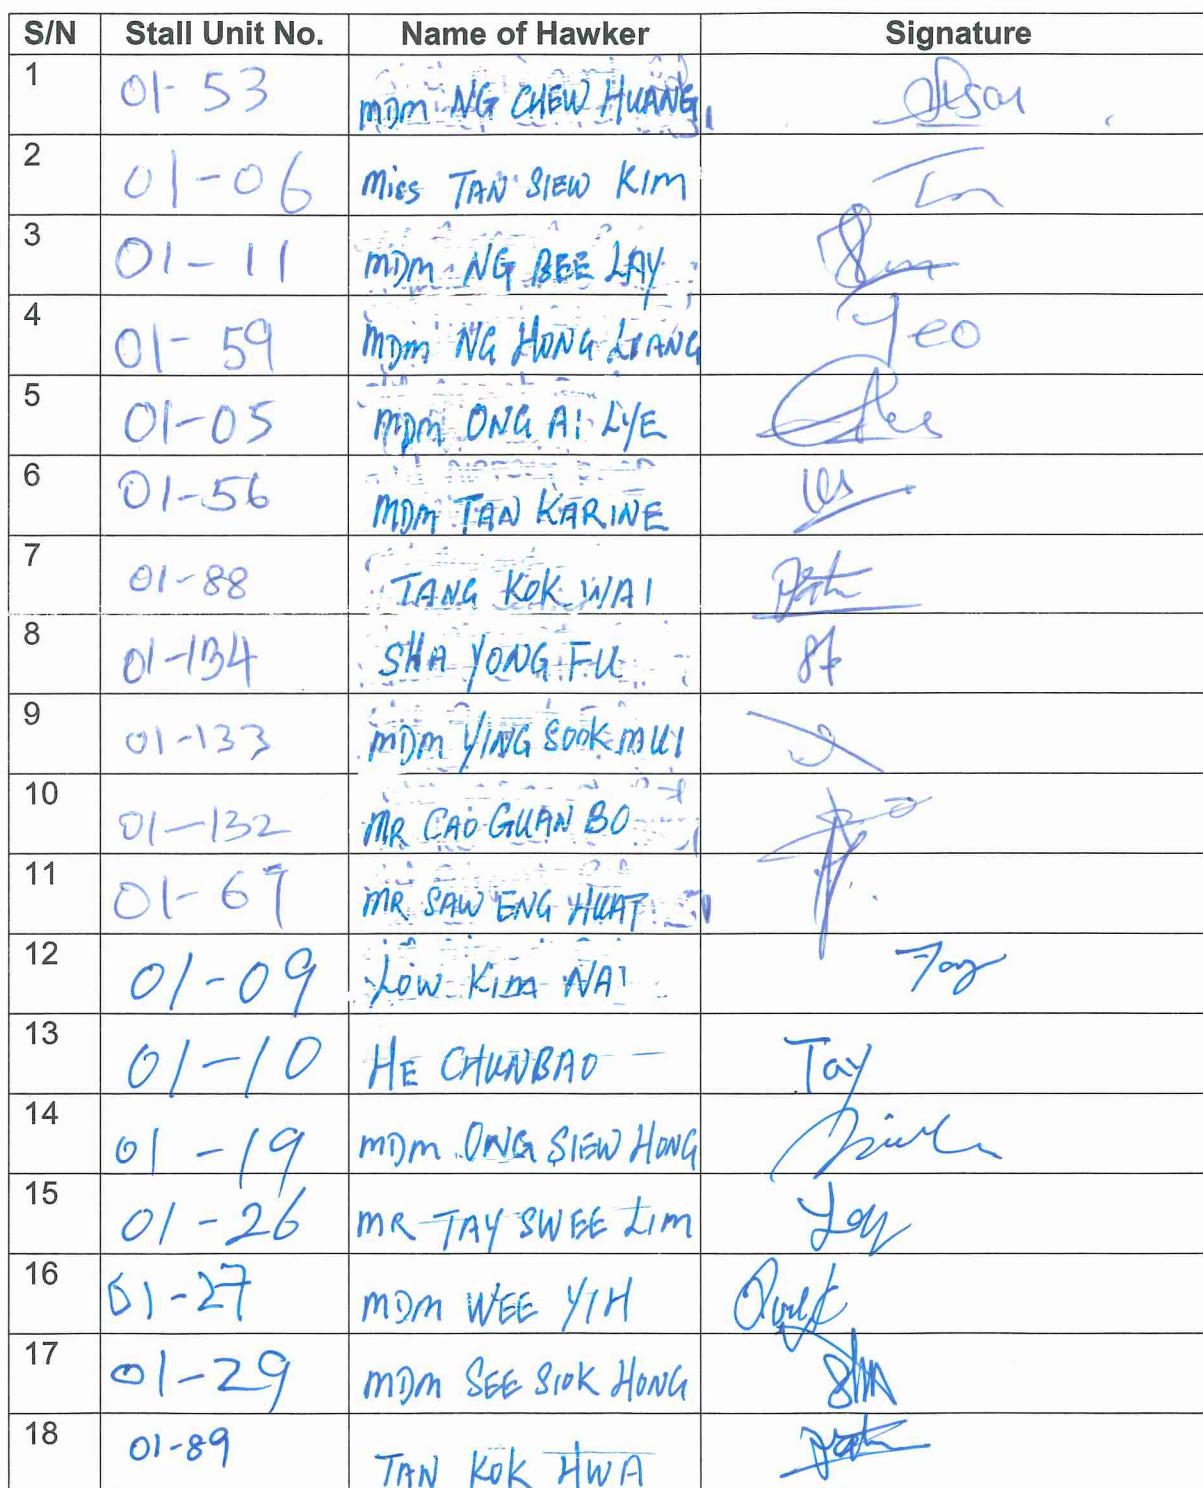 S/N Stall Unit No. Name of Hawker Signature
1 01-53 MDM NG CHEW HUANG
2 01-06 Miss TAN SIEW KIM
3 01-11 MDM NG BEE LAY
4 01-59 MDM NG HONG LIANG Yeo
5 01-05 MDM ONG AI LYE
6 01-56 MDM TAN KARINE
7 01-88 TANG KOK WAI
8 01-134 SHA YONG FU
9 01-133 MDM YING SOOK MUI
10 01-132 MR CAO GUAN BO
11 01-67 MR SAW ENG HUAT
12 01-09 LOW KIM NAI
13 01-10 HE CHUNBAO Tay
14 01-19 MDM ONG SIEW HONG
15 01-26 MR TAY SWEE LIM
16 01-27 MDM WEE YIH
17 01-29 MDM SEE SIOK HONG
18 01-89 TAN KOK HWA